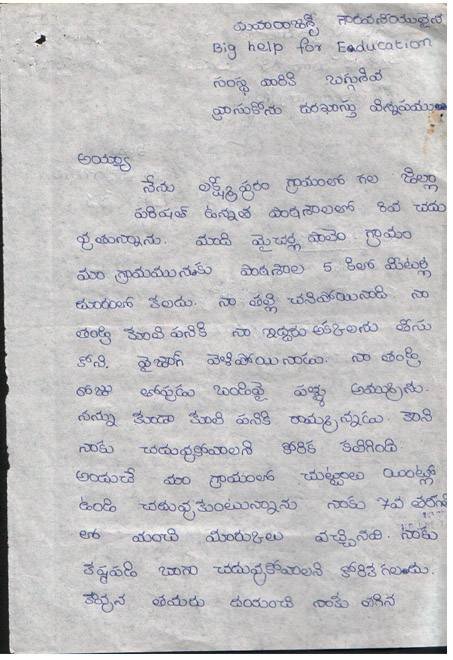 మహారాజశ్రీ గౌరవనీయులైన
Big help for Eaducation
సంస్థ వారికి
వ్రాసుకొను దరఖాస్తు విన్నపములు
అయ్యా
నేను లక్ష్మీపురం గ్రామంలో గల జిల్లా
పరిషత్ ఉన్నత పాఠశాలలో 8వ చదు
వుతున్నాను. మాది పాలెం గ్రామం
మా గ్రామమునకు పాఠశాల 5 కిలో మీటర్ల
దూరంలో కలదు. నా తల్లి చనిపోయినాది నా
తండ్రి కూలి పనికి నా ఇద్దరు అక్కలను తీసు
కొని. వైజాగ్ వెళిపోయినాడు. నా తండ్రి
రోజు తోపుడు బండిపై పళ్ళు అమ్మును.
నన్ను కూడా కూలి పనికి రామ్మన్నడు. కాని
నాకు చదువుకోవాలని కోరిక కలిగింది
అందుచే మా గ్రామంలో చుట్టాలు యింట్లో
ఉండి చదువుకుంటున్నాను నాకు 7వ తరగతి
లో మంచి మార్కులు వచ్చినవి. నాకు
కష్టపడి బాగా చదువుకోవాలని కోరిక గలదు.
కావున తమరు దయవుంచి నాకు తగిన